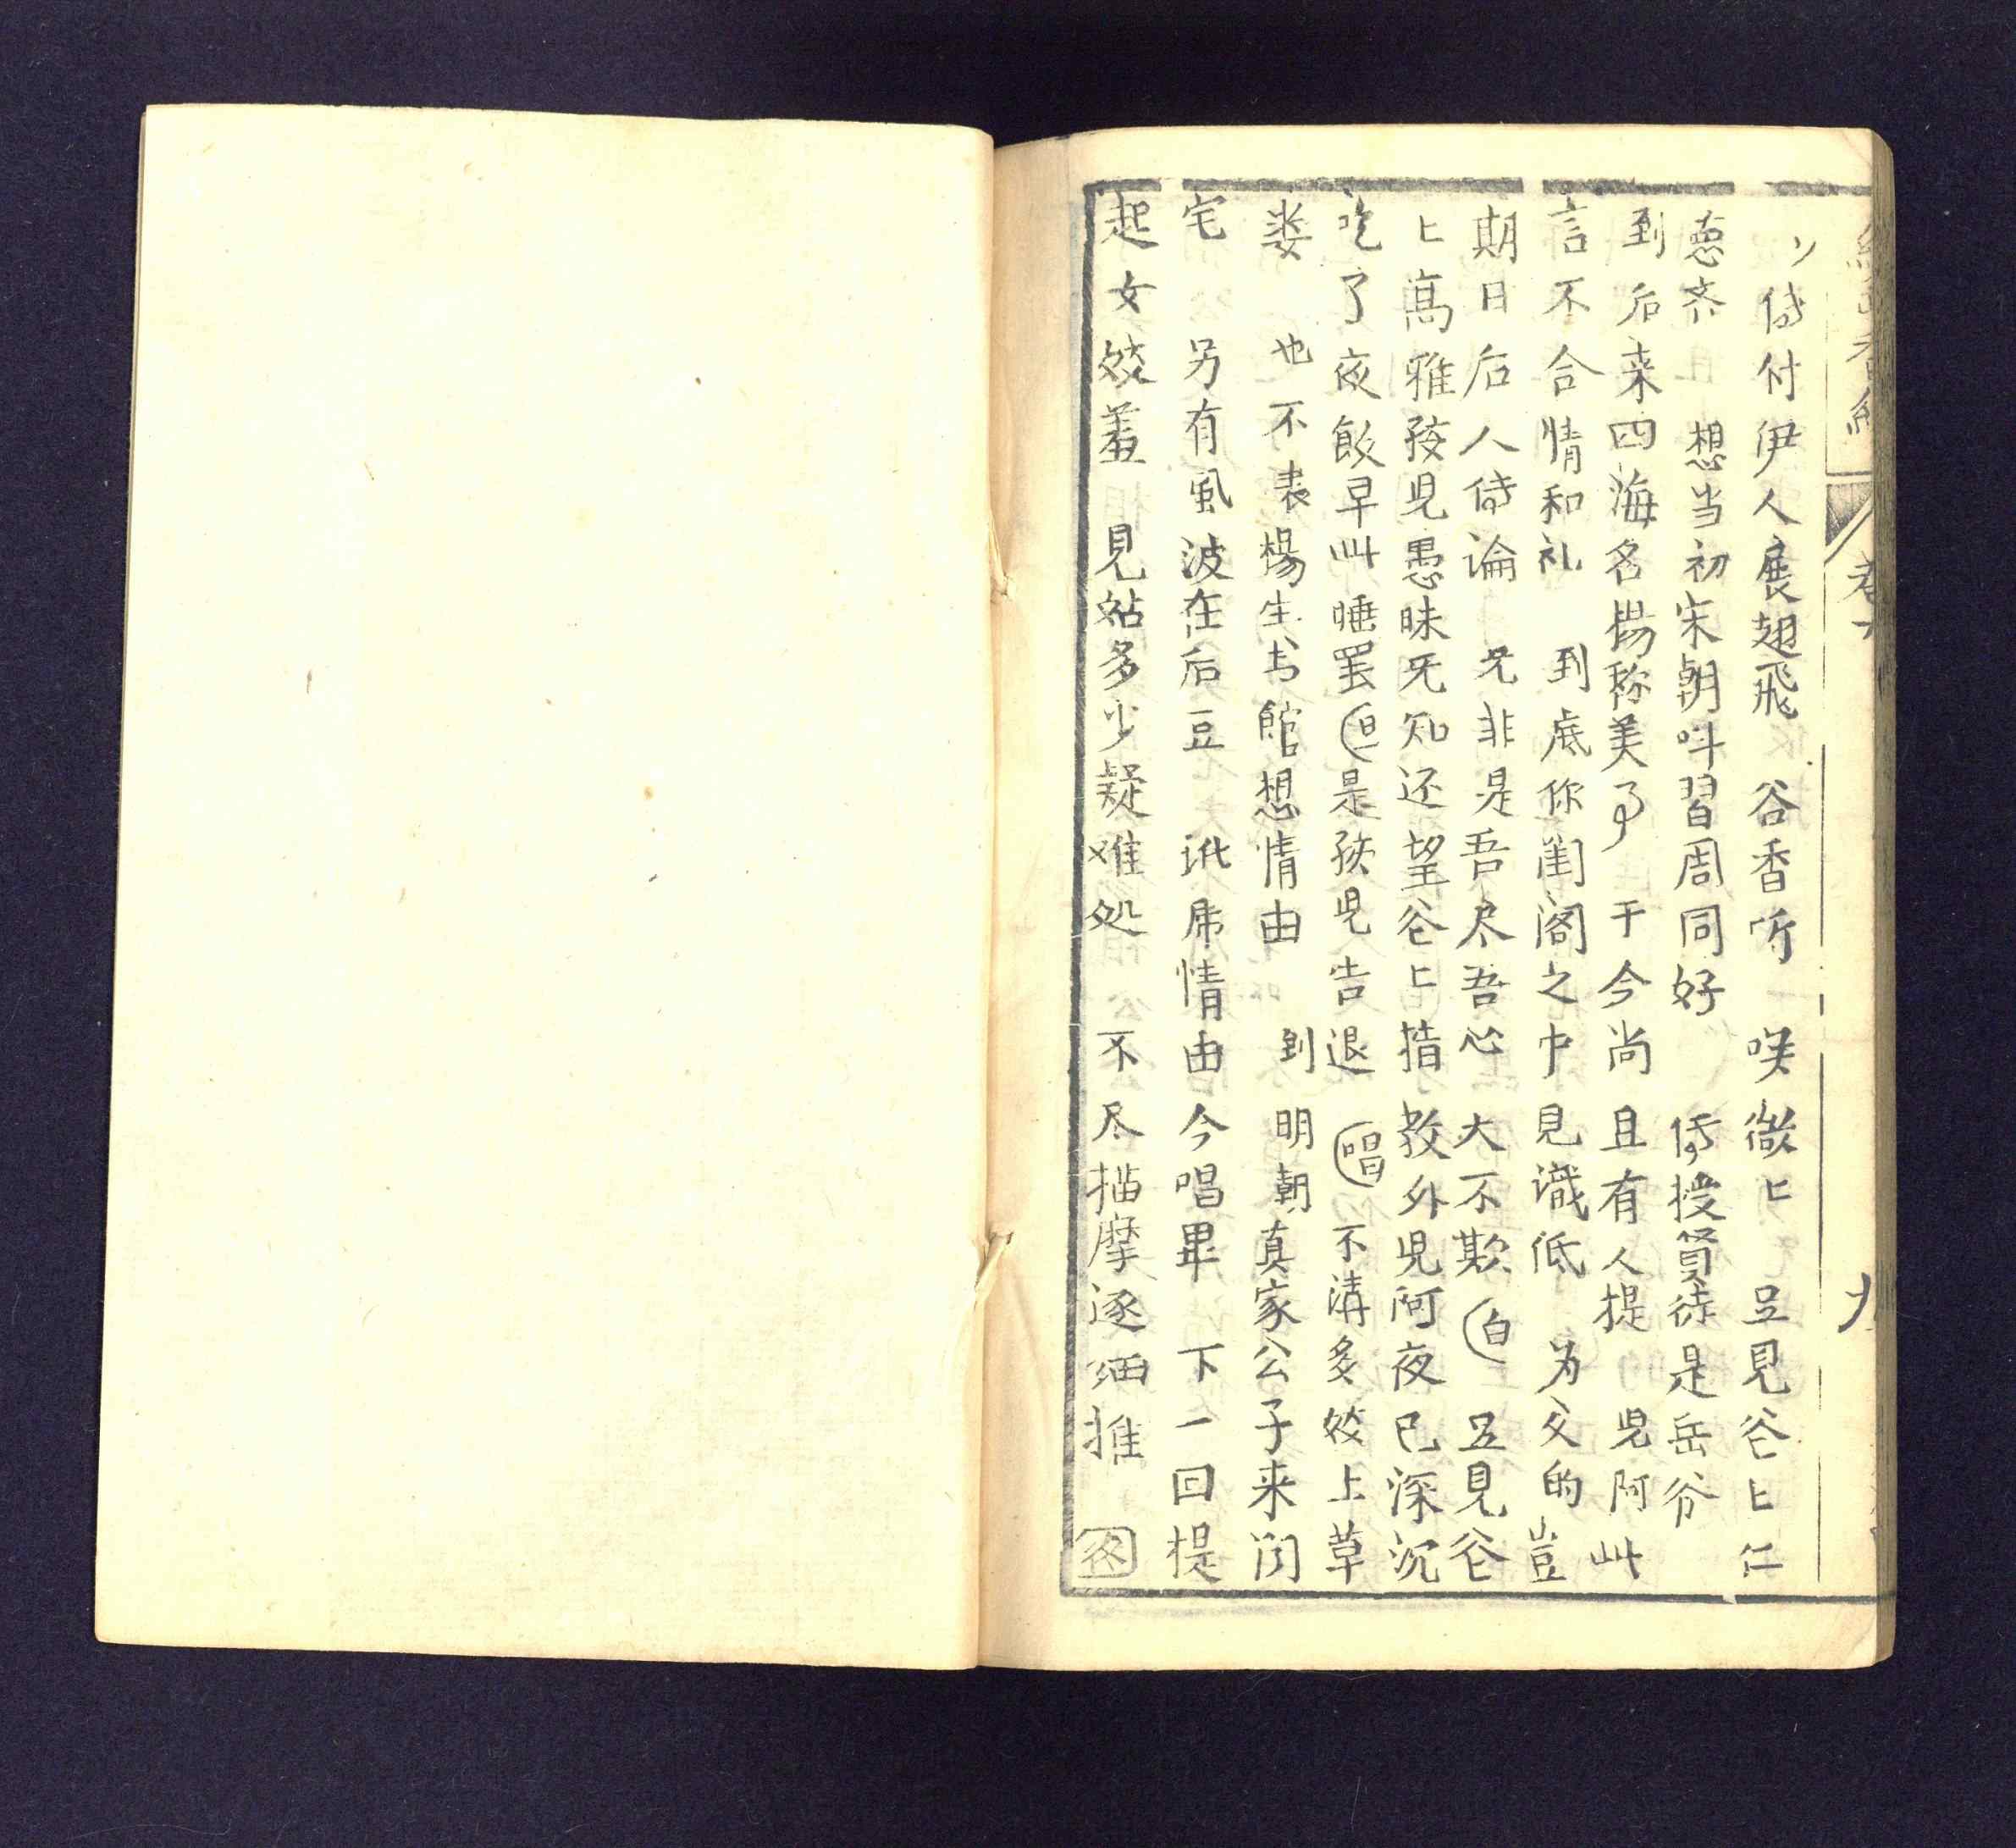 付伊人展翅飛　谷香听　咲微ヒ　豆見爸ヒ仁
想当初宋朝叫習周同好　傳授賢徒是岳爷
到后来四海名揚称美亇　于今尚且有人提　児阿此
言不合情和礼　到底你閨阁之中見識低　为父的豈
期日后人侍論　旡非是吾尽吾心大不欺　白　豆見爸
ヒ高雅孩児愚昧旡知还望爸ヒ指教外児阿夜已深沉
吃了夜飯早叫睡罢　白　是孩児告退　唱　不講多姣上草
娄　也不表楊生书館想情由　到明朝真家公子来闹
宅　另有風波在后豆　讹席情由今唱畢　下一回提
起女姣羞　見姑多少疑难処　不尽描摩逐細推